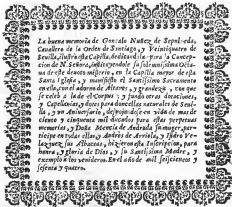 La buena memoria de Gonzalo Nuñez de Sepulueda,
Cavallero de la Orden de Santiago, y Veintiquatro de
Sevilla, ilustró esta Capilla, dedicada à la pura Concepcion
de N. Señora, su solemnissima Octava
de este devoto misterio, en la Capilla mayor de esta
Santa Iglesia, y manifiesto el Santissimo Sacramento
en ella, con el adorno de Altares, y grandeza, con que
se celebra la de el Corpus: y fundò otras donaciones,
y Capellanias, y dotes para doncellas naturales de Sevilla,
y un Aniversario, dexando en vida mas de
ciento y cinquenta mil ducados para estas perpetuas
memorias, y Doña Mencia de Andrada su muger, participe
en todas ellas, y Andres de Arriola, y Isidro Velazquez,
sus Albaceas, hizieron esta Inscripcion, para
honra, y gloria de Dios, y su Santissima Madre, y
exemplo a los venideros. En el año de mil seiscientos y
sesenta y quatro.